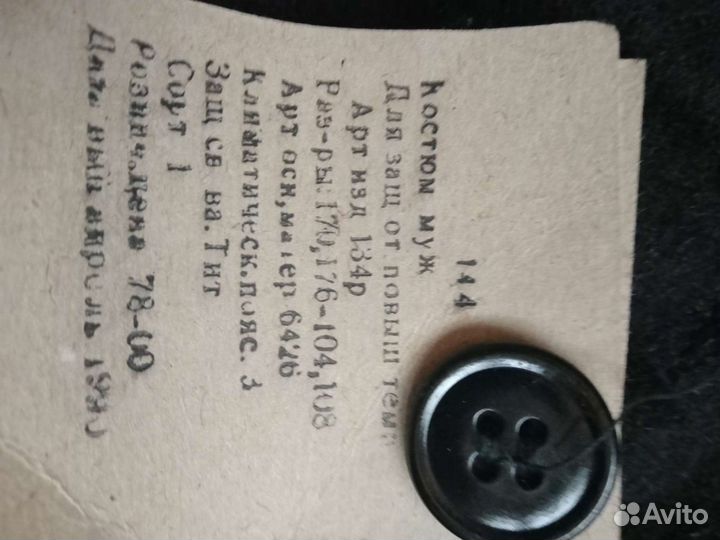 144
Костюм муж
Для защ от повыш темп
Арт изд 134р
Раз-ры: 170,176-104,108
Арт осн,матер 6426
Климатическ.пояс. 3
Защ св ва. Тит
Сорт 1
Рознич.цена 78-00
апрель 1990
Avito